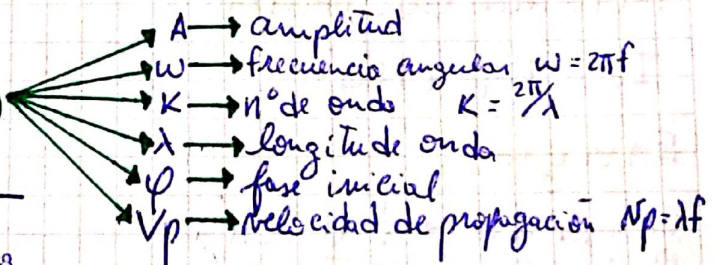 A → amplitud
w → frecuencia angular w = 2πf
K → nº de onda K = 2π/λ
λ → longitud de onda
φ → fase inicial
Vp → velocidad de propagación Vp = λf